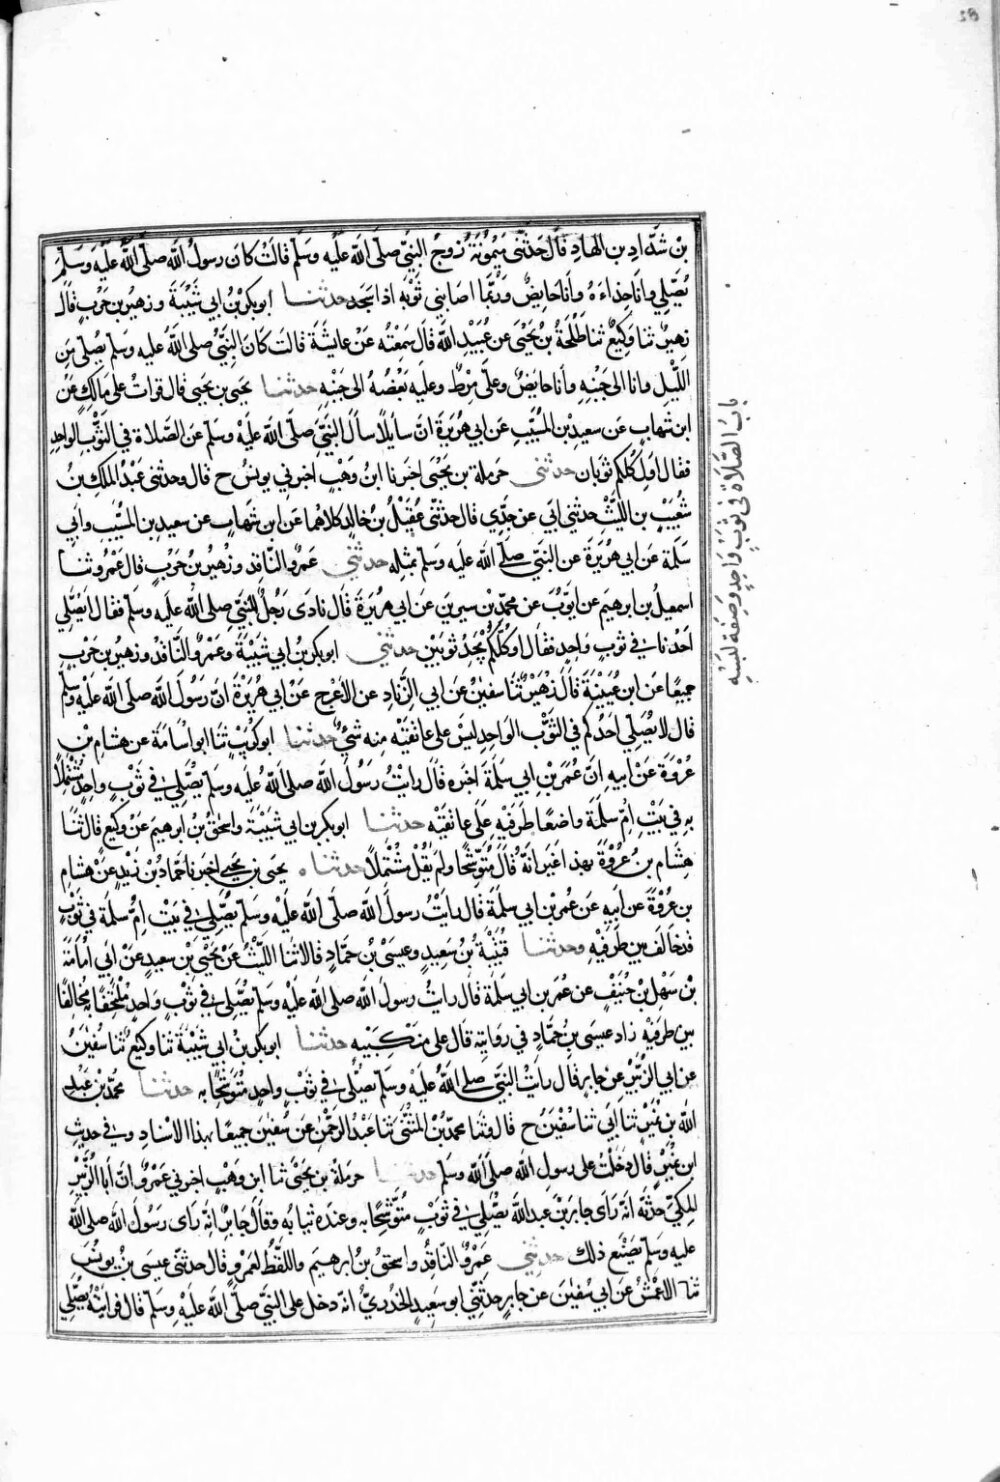 بن شداد بن الهاد قال حدثتني ميمونة زوج النبي صلى الله عليه وسلم قالت كان رسول الله صلى الله عليه وسلم
يصلي وانا حذاءه وانا حايض وربما اصابني ثوبه اذا سجد حدثنا ابو بكر بن ابي شيبة وزهير بن حرب قال
زهير ثنا وكيع ثنا طلحة بن يحيى عن عبيد الله قال سمعته عن عايشة قالت كان النبي صلى الله عليه وسلم يصلي من
الليل وانا الى جنبه وانا حايض وعلي مرط وعليه بعضه الى جنبه حدثنا يحيى بن يحيى قال قرات على مالك عن
ابن شهاب عن سعيد بن المسيب عن ابي هريرة ان سايلا سال النبي صلى الله عليه وسلم عن الصلاة في الثوب الواحد
فقال اولكلكم ثوبان حدثني حرملة بن يحيى اخبرنا ابن وهب اخبرني يونس ح قال وحدثني عبد الملك بن
شعيب بن الليث حدثني ابي عن جدي قال حدثني عقيل بن خالد كلاهما عن ابن شهاب عن سعيد بن المسيب وابي
سلمة عن ابي هريرة عن النبي صلى الله عليه وسلم بمثله حدثني عمرو الناقد وزهير بن حرب قال عمرو ثنا
اسمعيل بن ابرهيم عن ايوب عن محمد بن سيرين عن ابي هريرة قال نادى رجل النبي صلى الله عليه وسلم فقال ايصلي
احدنا في ثوب واحد فقال اوكلكم يجد ثوبين حدثني ابو بكر بن ابي شيبة وعمرو الناقد وزهير بن حرب
جميعا عن ابن عيينة قال زهير ثنا سفين عن ابي الزناد عن الاعرج عن ابي هريرة ان رسول الله صلى الله عليه وسلم
قال لا يصلي احدكم في الثوب الواحد ليس على عاتقيه منه شي حدثنا ابو كريب ثنا ابو اسامة عن هشام بن
عروة عن ابيه ان عمر بن ابي سلمة اخبره قال رايت رسول الله صلى الله عليه وسلم يصلي في ثوب واحد مشتملا
به في بيت ام سلمة واضعا طرفيه على عاتقيه حدثنا ابو بكر بن ابي شيبة واسحق بن ابرهيم عن وكيع قال ثنا
هشام بن عروة بهذا غير انه قال متوشحا ولم يقل مشتملا حدثنا يحيى بن يحيى اخبرنا حماد بن زيد عن هشام
بن عروة عن ابيه عن عمر بن ابي سلمة قال رايت رسول الله صلى الله عليه وسلم يصلي في بيت ام سلمة في ثوب
قد خالف بين طرفيه وحدثنا قتيبة بن سعيد وعيسى بن حماد قالا ثنا الليث عن يحيى بن سعيد عن ابي امامة
بن سهل بن حنيف عن عمر بن ابي سلمة قال رايت رسول الله صلى الله عليه وسلم يصلي في ثوب واحد ملتحفا مخالفا
بين طرفيه زاد عيسى بن حماد في روايته قال على منكبيه حدثنا ابو بكر بن ابي شيبة ثنا وكيع ثنا سفين
عن ابي الزبير عن جابر قال رايت النبي صلى الله عليه وسلم يصلي في ثوب واحد متوشحا به حدثنا محمد بن عبد
الله بن نمير ثنا ابي ثنا سفين ح قال وثنا محمد بن المثنى ثنا عبد الرحمن عن سفين جميعا بهذا الاسناد وفي حديث
ابن نمير قال دخلت على رسول الله صلى الله وسلم حدثنا حرملة بن يحيى ثنا ابن وهب اخبرني عمرو ان ابا الزبير
المكي حدثه انه راى جابر بن عبد الله يصلي في ثوب متوشحا به وعنده ثيابه وقال جابر انه راى رسول الله صلى الله
عليه وسلم يصنع ذلك حدثني عمرو الناقد واسحق بن ابرهيم واللفظ لعمرو قال حدثني عيسى بن يونس
ثنا الاعمش عن ابي سفين عن جابر حدثني ابو سعيد الخدري انه دخل على النبي صلى الله عليه وسلم قال فرايته يصلي
باب الصلاة في ثوب واحد وصفة لبسه